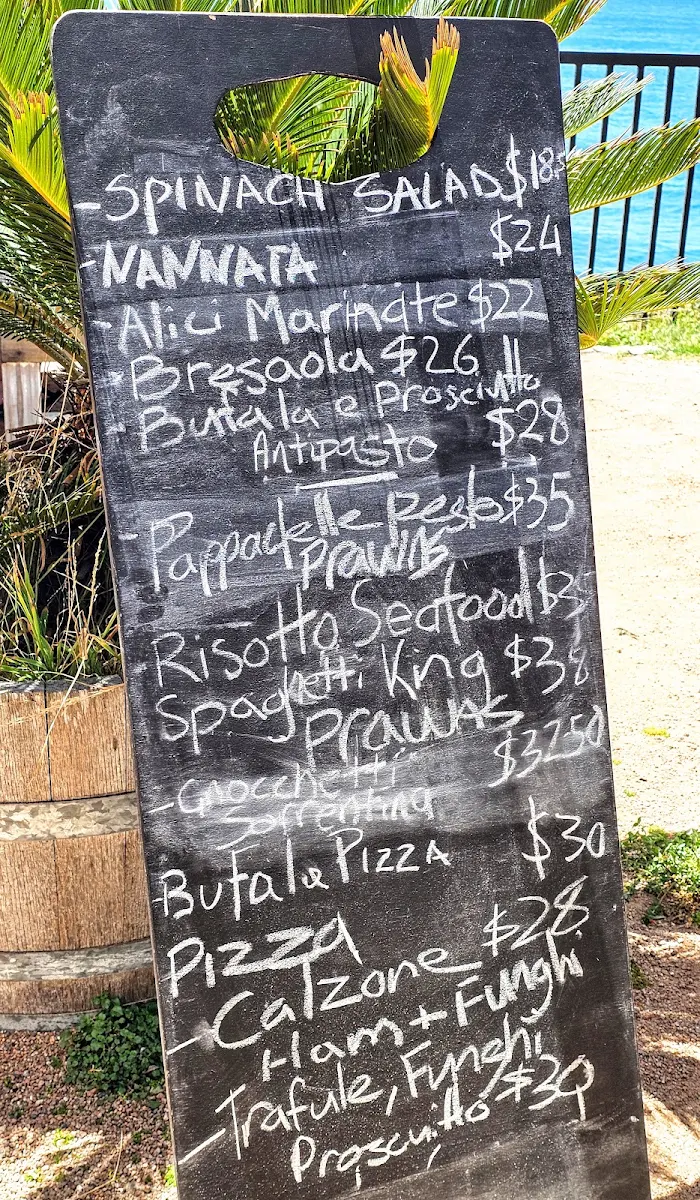 - SPINACH SALAD $18.5
- NANNATA $24
- Alici Marinate $22
- Bresaola $26
- Bufala e Prosciutto
Antipasto $28
- Pappadelle Pesto $35
Prawns
- Risotto Seafood
- Spaghetti King $38
Prawns
- Gnocchetti $3250
Sorrentina
- Bufala PIZZA $30
Pizza
- Calzone $28
Ham + Funghi
- Trafule, Funghi
Proscuitto $30